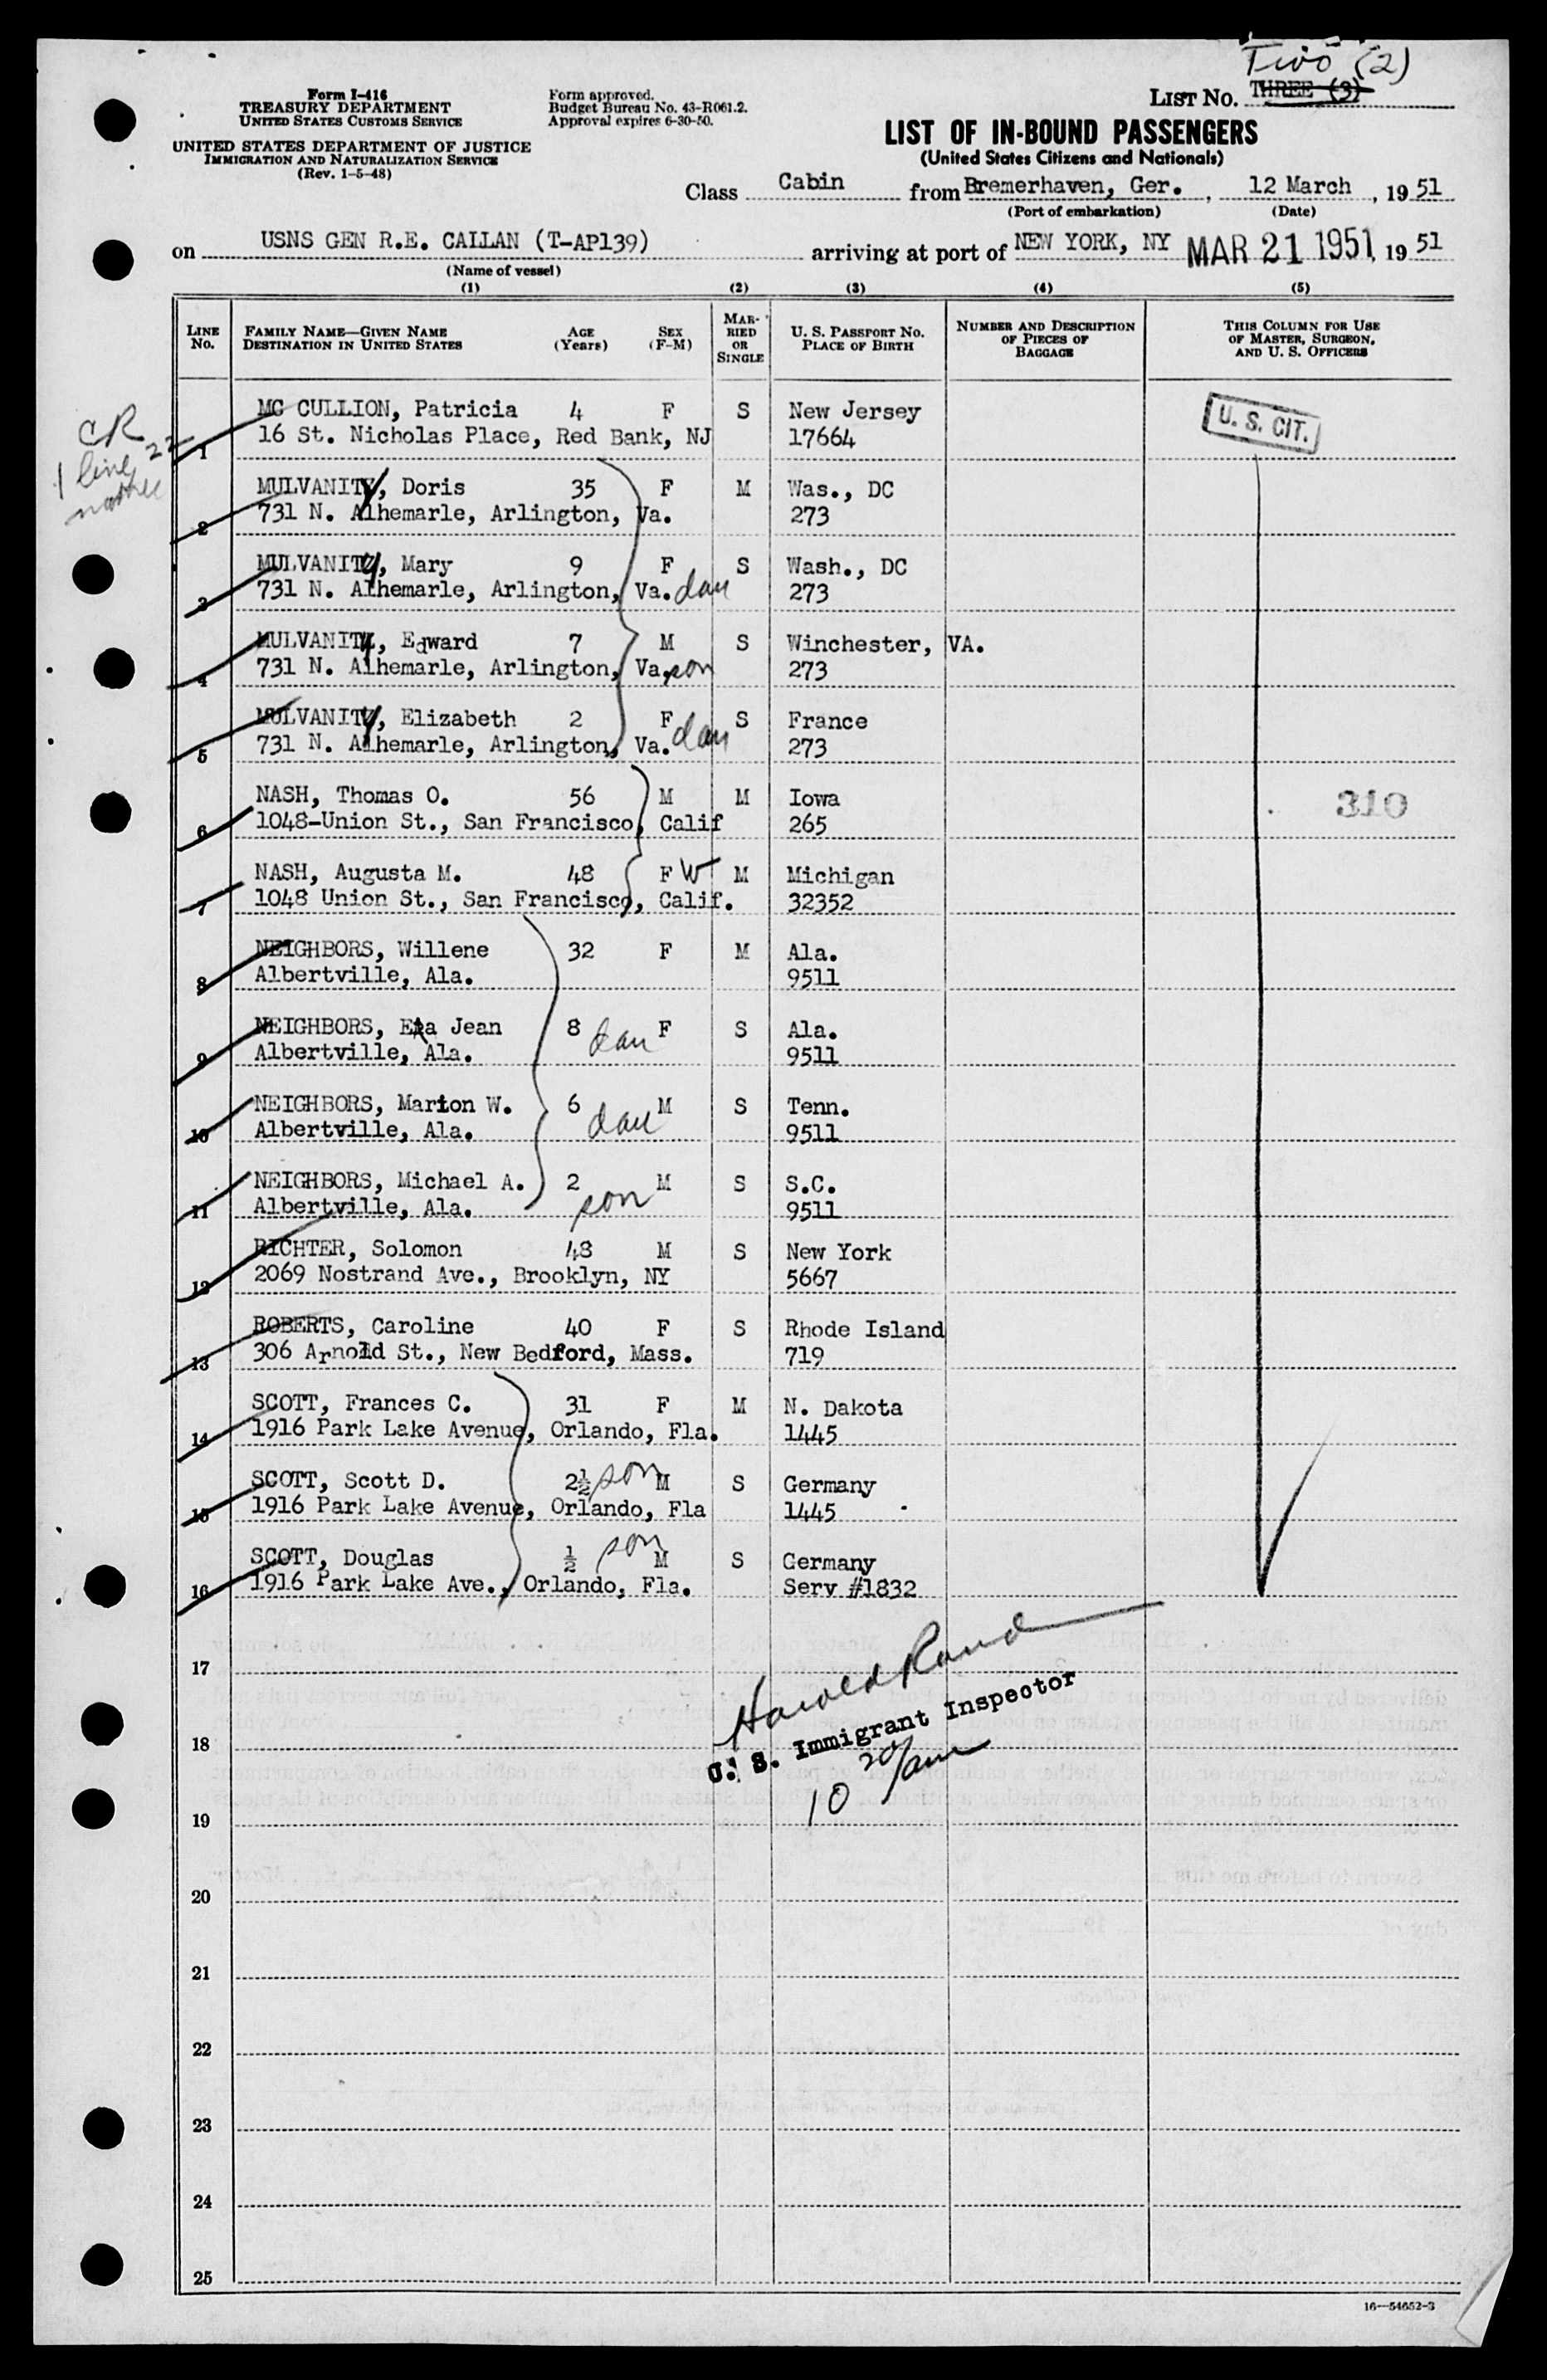 Two (2)
Form I-416
TREASURY DEPARTMENT
UNITED STATES CUSTOMS SERVICE
UNITED STATES DEPARTMENT OF JUSTICE
IMMIGRATION AND NATURALIZATION SERVICE
(Rev. 1-5-48)
Form approved.
Budget Bureau No. 43-R061.2.
Approval expires 6-30-50.
LIST No. THREE (3)
LIST OF IN-BOUND PASSENGERS
(United States Citizens and Nationals)
Class Cabin from Bremerhaven, Ger., 12 March, 19 51
(Port of embarkation) (Date)
on USNS GEN R.E. CALLAN (T-AP139) arriving at port of NEW YORK, NY MAR 21 1951, 19 51
(Name of vessel)
(1) (2) (3) (4) (5)
LINE No. FAMILY NAME—GIVEN NAME DESTINATION IN UNITED STATES AGE (Years) SEX (F-M) MARRIED OR SINGLE U. S. PASSPORT No. PLACE OF BIRTH NUMBER AND DESCRIPTION OF PIECES OF BAGGAGE THIS COLUMN FOR USE OF MASTER, SURGEON, AND U. S. OFFICERS
CR
1 line
22
MC CULLION, Patricia 4 F S New Jersey U. S. CIT.
1 16 St. Nicholas Place, Red Bank, NJ 17664
MULVANITY, Doris 35 F M Was., DC
2 731 N. Alhemarle, Arlington, Va. 273
MULVANITY, Mary 9 F S Wash., DC
3 731 N. Alhemarle, Arlington, Va. dau 273
MULVANITY, Edward 7 M S Winchester, VA.
4 731 N. Alhemarle, Arlington, Va. son 273
MULVANITY, Elizabeth 2 F S France
5 731 N. Alhemarle, Arlington, Va. dau 273
NASH, Thomas O. 56 M M Iowa 310
6 1048-Union St., San Francisco, Calif 265
NASH, Augusta M. 48 F W M Michigan
7 1048 Union St., San Francisco, Calif. 32352
NEIGHBORS, Willene 32 F M Ala.
8 Albertville, Ala. 9511
NEIGHBORS, Jean 8 dau F S Ala.
9 Albertville, Ala. 9511
NEIGHBORS, Marion W. 6 dau M S Tenn.
10 Albertville, Ala. 9511
NEIGHBORS, Michael A. 2 son M S S.C.
11 Albertville, Ala. 9511
RICHTER, Solomon 48 M S New York
12 2069 Nostrand Ave., Brooklyn, NY 5667
ROBERTS, Caroline 40 F S Rhode Island
13 306 Arnold St., New Bedford, Mass. 719
SCOTT, Frances C. 31 F M N. Dakota
14 1916 Park Lake Avenue, Orlando, Fla. 1445
SCOTT, Scott D. 2½ son M S Germany
15 1916 Park Lake Avenue, Orlando, Fla 1445
SCOTT, Douglas ½ son M S Germany
16 1916 Park Lake Ave., Orlando, Fla. Serv #1832
17
Harold Rand
18
U. S. Immigrant Inspector
10 20/am
19
20
21
22
23
24
25
16—54652-3